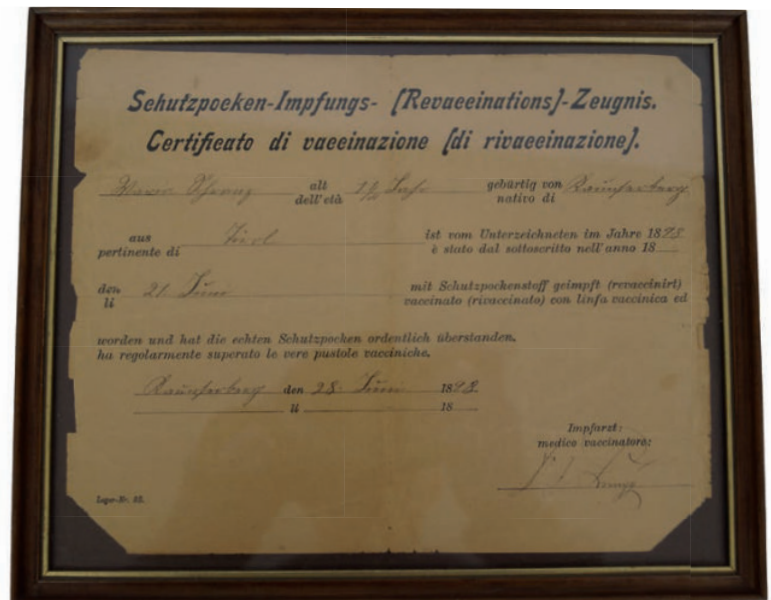 Schutzpocken-Impfungs- [Revaccinations]-Zeugnis.
Certificato di vaccinazione [di rivaccinazione].
alt gebürtig von
dell'età nativo di
aus Tirol ist vom Unterzeichneten im Jahre 1898
pertinente di è stato dal sottoscritto nell'anno 18
den 21 Juni mit Schutzpockenstoff geimpft (revaccinirt)
li vaccinato (rivaccinato) con linfa vaccinica ed
worden und hat die echten Schutzpocken ordentlich überstanden.
ha regolarmente superato le vere pustole vacciniche.
den 28. Juni 1898
li 18
Impfarzt:
medico vaccinatore:
Lager-Nr. 82.